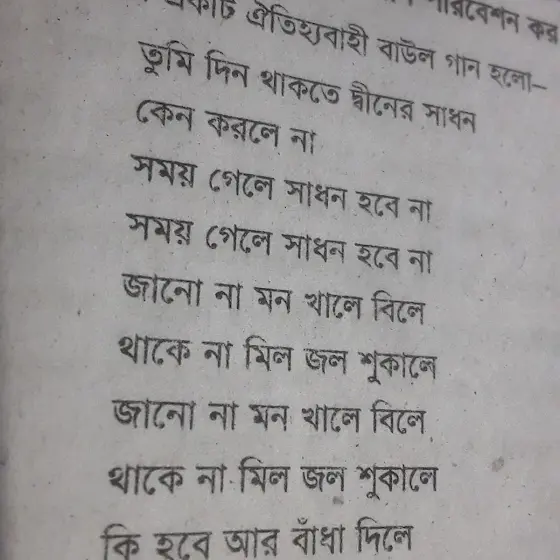 একটি ঐতিহ্যবাহী বাউল গান হলো–
তুমি দিন থাকতে দ্বীনের সাধন
কেন করলে না
সময় গেলে সাধন হবে না
সময় গেলে সাধন হবে না
জানো না মন খালে বিলে
থাকে না মিল জল শুকালে
জানো না মন খালে বিলে
থাকে না মিল জল শুকালে
কি হবে আর বাঁধা দিলে